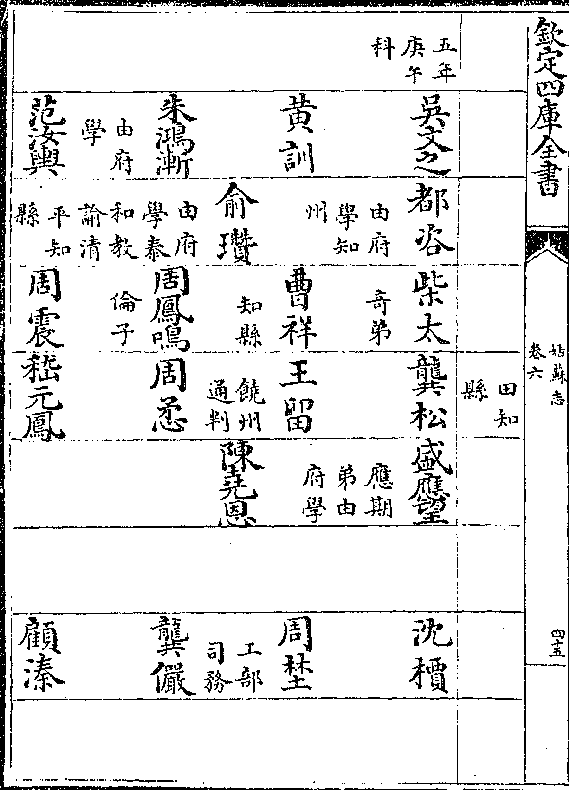 欽定四庫全書
姑蘇志
卷六
四十五
田知
縣
五年
庚午
科
吳文之
黄訓
朱鴻漸
由府
學
范汝輿
都
由府
學知
州
俞瓚
由府
學泰
和教
諭清
平知
縣
柴太
奇弟
曹祥
知縣
周鳳鳴
倫子
周震
龔松
王畱
饒州
通判
周
嵇元鳳
盛應望
應期
弟由
府學
陳堯恩
沈
周埜
工部
司務
龔儼
顧溱